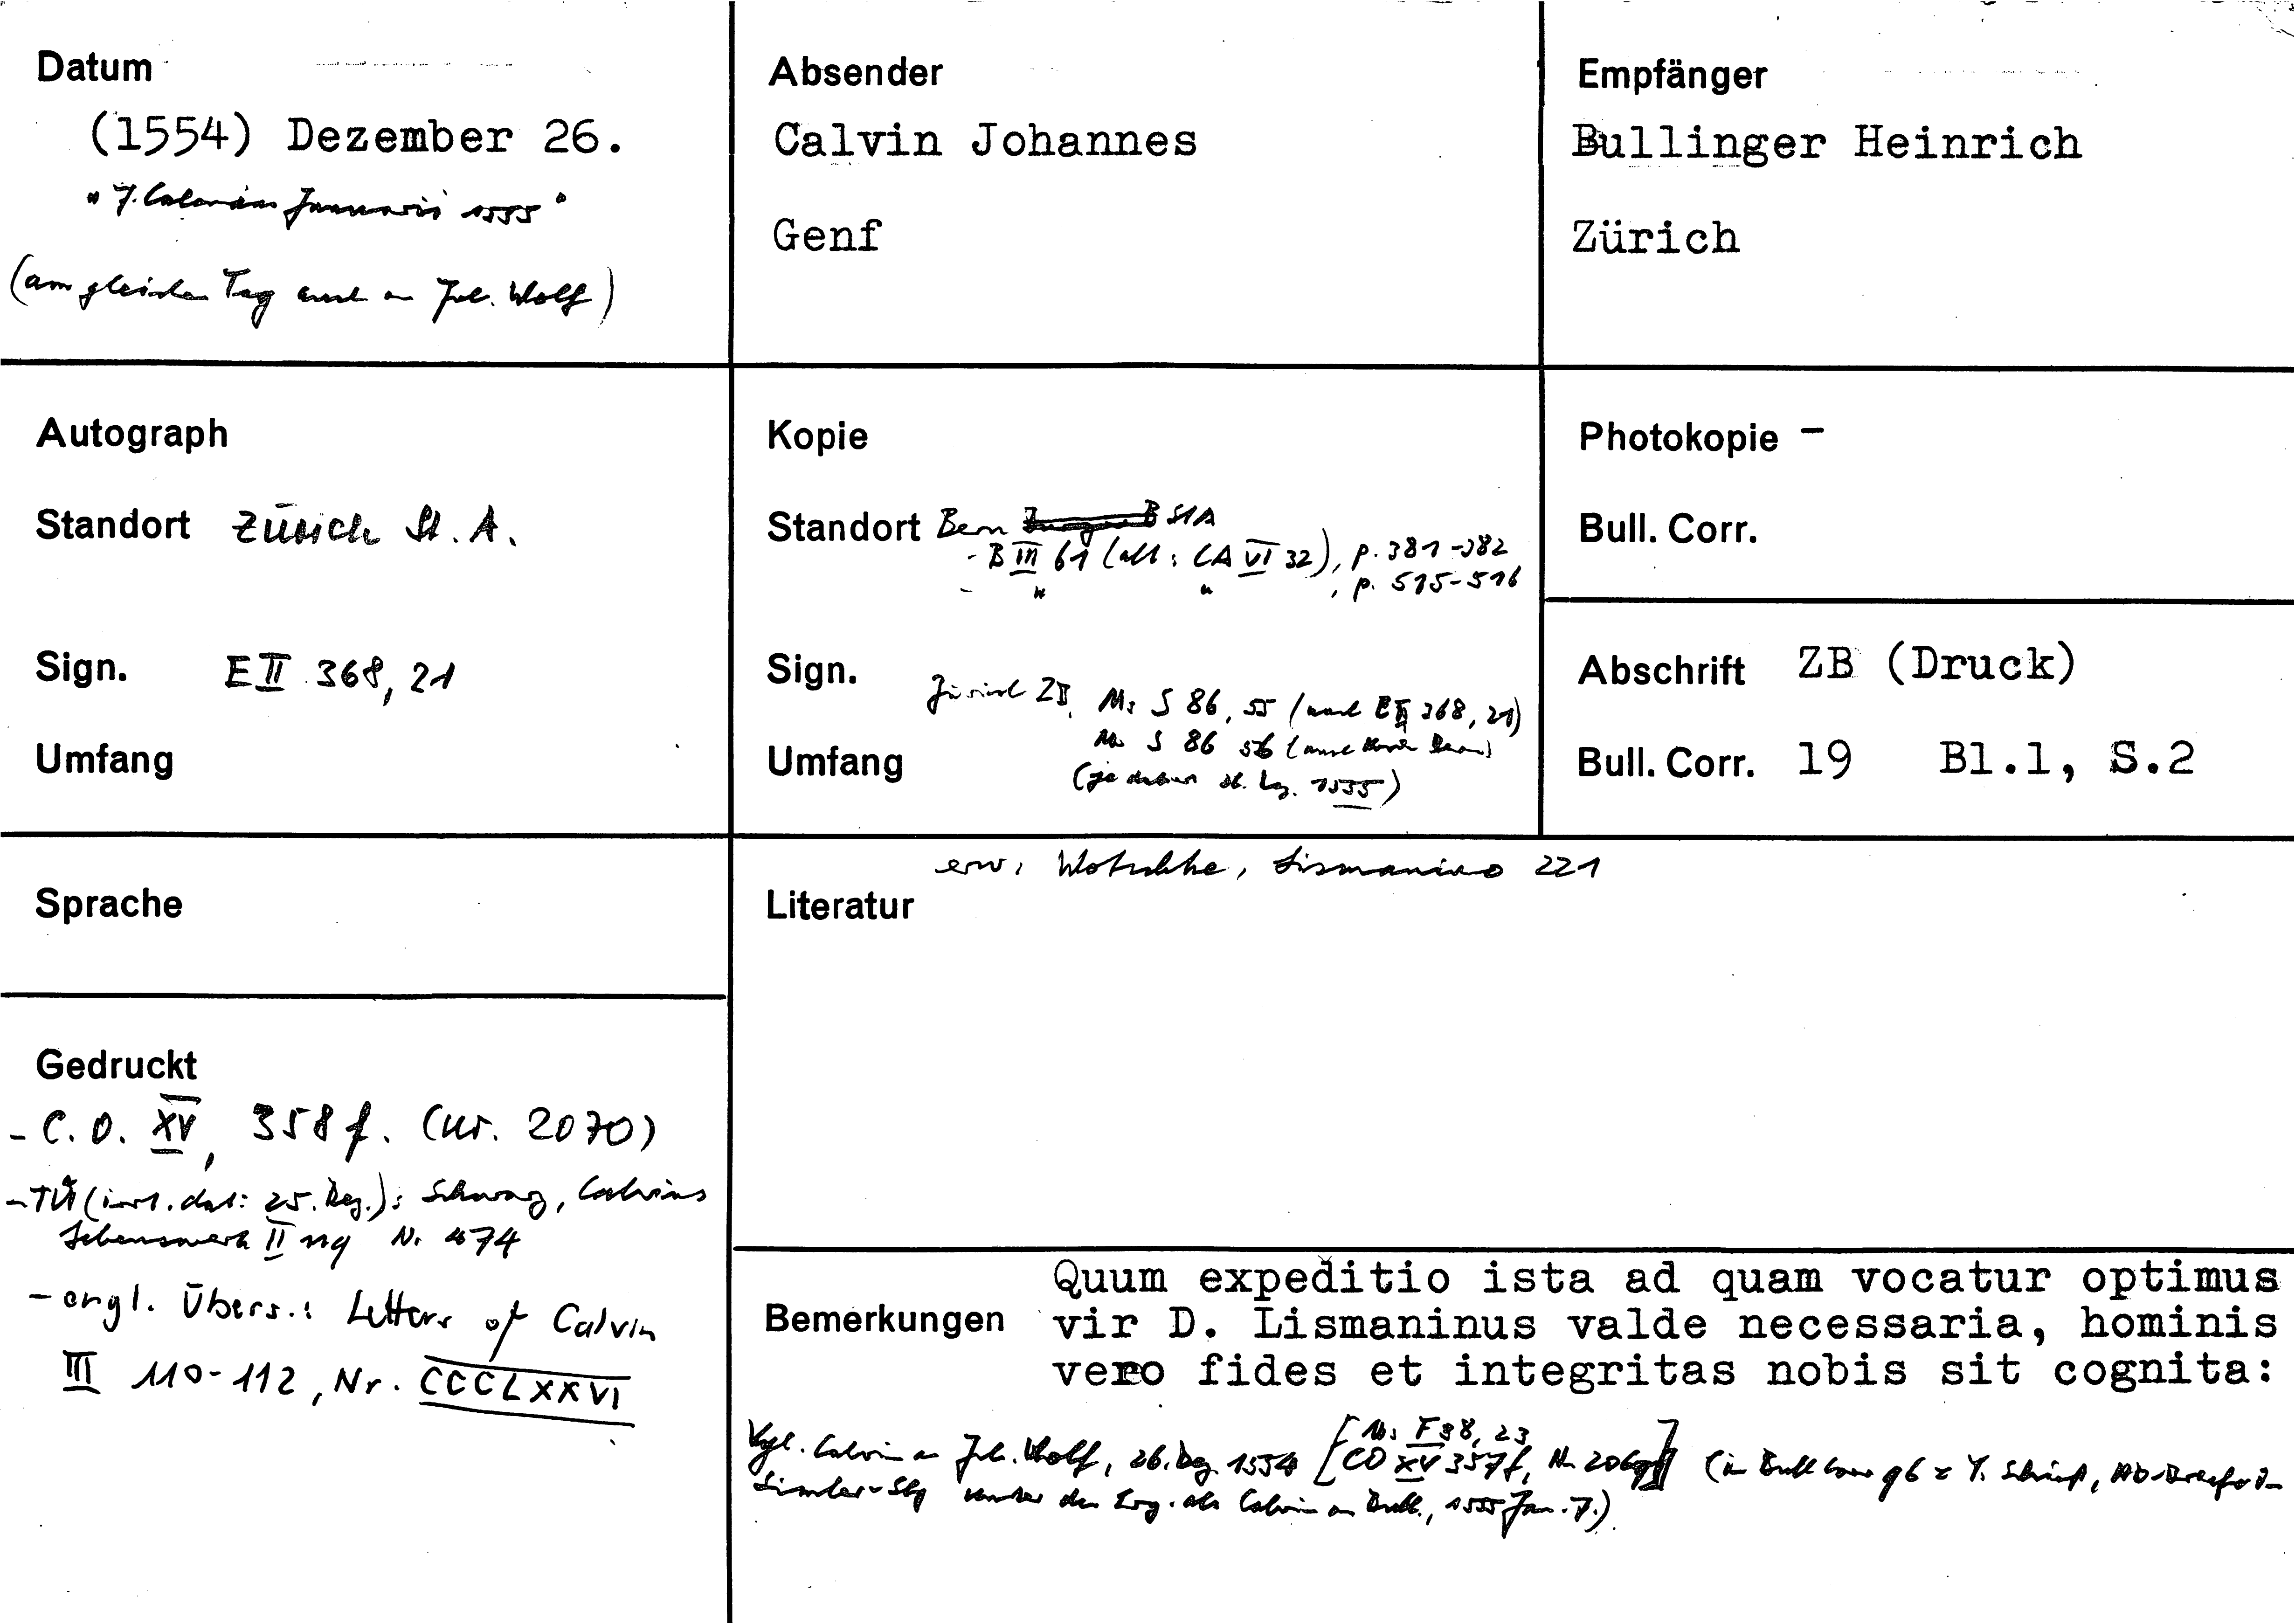 Datum
(1554) Dezember 26.
"7. Calendas Januarii 1555"
(am gleichen Tag auch an Joh. Wolf)
Absender
Calvin Johannes
Genf
Empfänger
Bullinger Heinrich
Zürich
Autograph
Standort Zürich St. A.
Sign. E II 368, 21
Umfang
Kopie
Standort Bern StA
- B III 61 (alt: CA VI 32), p. 381-382
- " " , p. 515-516
Sign. Zürich ZB, Ms S 86, 55 (nach E II 368, 21)
Ms S 86 56
Umfang 1555)
Photokopie -
Bull. Corr.
Abschrift ZB (Druck)
Bull. Corr. 19 Bl.1, S.2
Sprache
erw. Wotschke, Lismanino 221
Literatur
Gedruckt
- C. O. XV, 358 f. (Nr. 2070)
- TÜ (irrt. dat: 25. Dez.): Schwarz, Calvins
Lebenswerk II 119 Nr 474
- engl. Übers.: Letters of Calvin
III 110-112, Nr. CCCLXXVI
Bemerkungen
Quum expeditio ista ad quam vocatur optimus
vir D. Lismaninus valde necessaria, hominis
vero fides et integritas nobis sit cognita:
Vgl. Calvin an Joh. Wolf, 26. Dez. 1554 [Ms F 38, 23
CO XV 357f, Nr. 2069] (in Bull Corr
Simler-Slg unter den als Calvin an Bull., 1555 Jan. 7.)